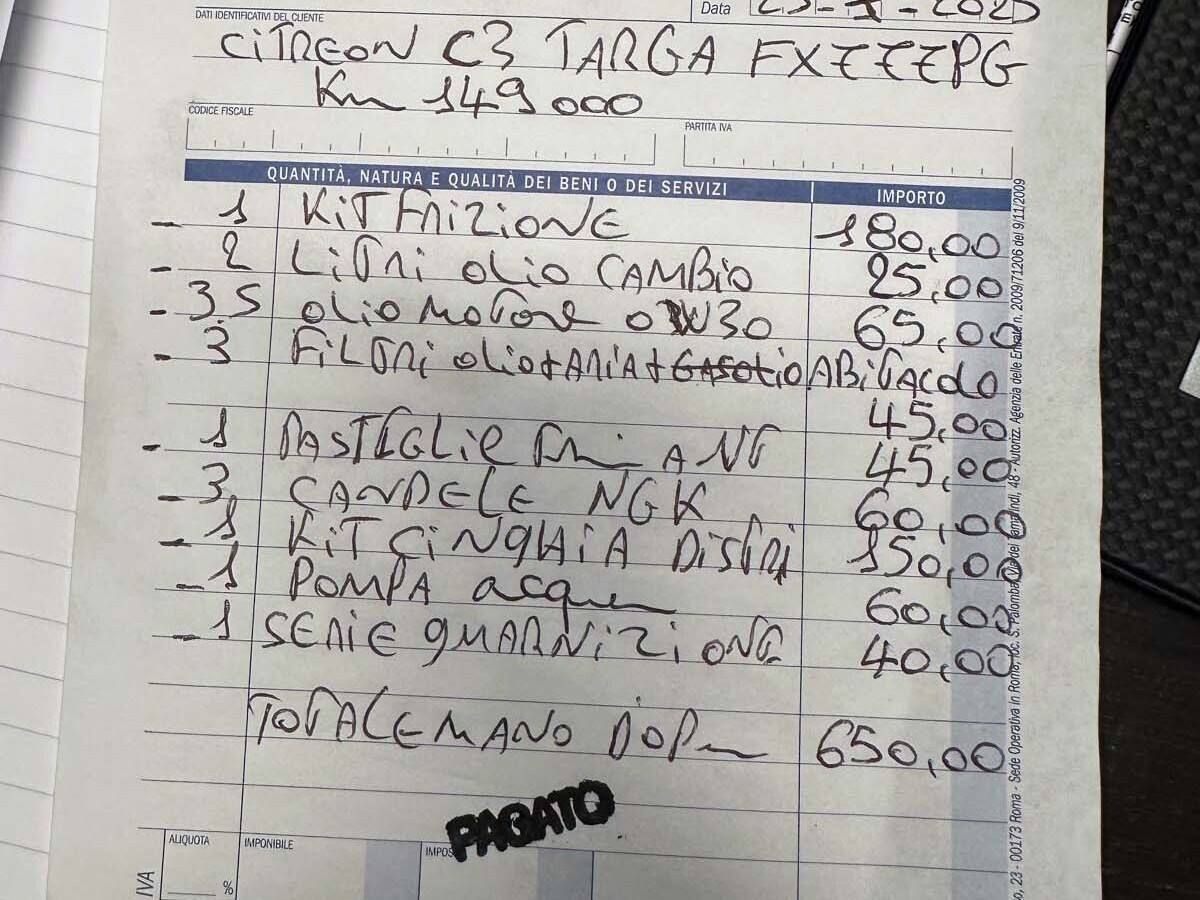 DATI IDENTIFICATIVI DEL CLIENTE
Data
CITREON C3 TARGA FXZZZPG
Km 149000
CODICE FISCALE
PARTITA IVA
QUANTITÀ, NATURA E QUALITÀ DEI BENI O DEI SERVIZI IMPORTO
- 1 KIT FRIZIONE 180,00
- 2 LITRI OLIO CAMBIO 25,00
- 3.5 OLIO MOTORE 0W30 65,00
- 3 FILTRI OLIO+ARIA+GASOLIO ABITACOLO
45,00
- 1 PASTIGLIE ANT 45,00
- 3 CANDELE NGK 60,00
- 1 KIT CINGHIA DISTRI 150,00
- 1 POMPA acqua 60,00
- 1 SERIE GUARNIZIONE 40,00
TOTALE MANO DOP 650,00
PAGATO
ALIQUOTA
IMPONIBILE
IVA
%
23 - 00173 Roma - Sede Operativa in Roma, loc. S. Palomba, Autorizz. Agenzia delle Entrate n. 2009/71206 del 9/11/2009